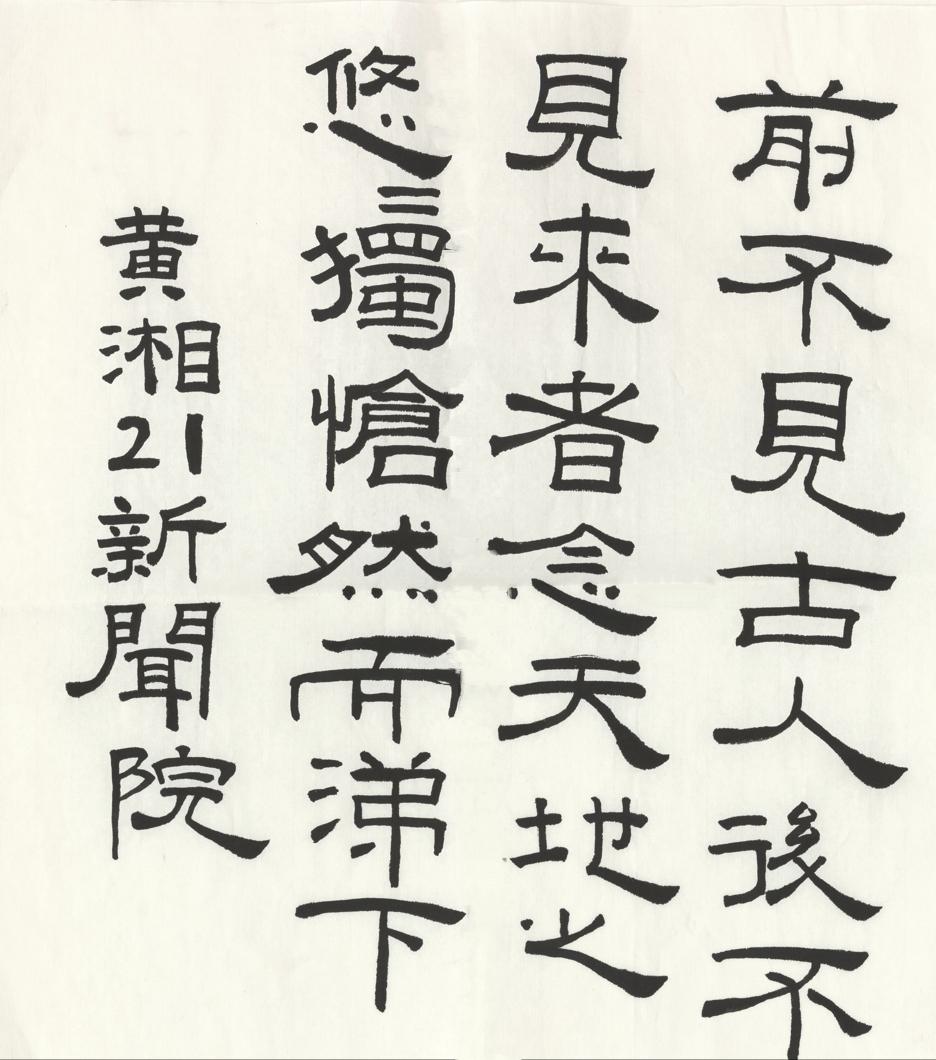 前不見古人後不
見來者念天地之
悠〻獨愴然而涕下
黄湘21新聞院